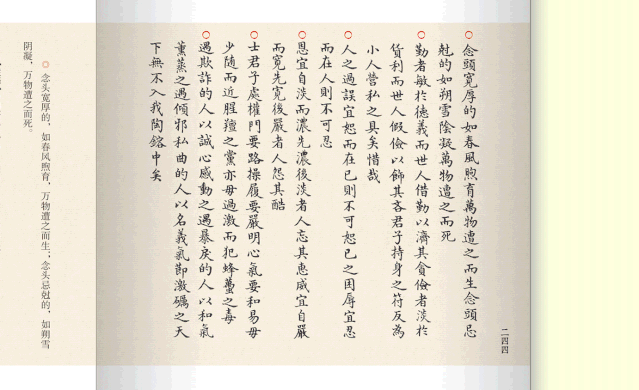 二四四
念頭寬厚的如春風煦育萬物遭之而生念頭忌
尅的如朔雪陰凝萬物遭之而死
勤者敏於德義而世人借勤以濟其貪儉者淡於
貨利而世人假儉以飾其吝君子持身之符反為
小人營私之具矣惜哉
人之過誤宜恕而在己則不可恕己之困辱宜忍
而在人則不可忍
恩宜自淡而濃先濃後淡者人忘其惠威宜自嚴
而寬先寬後嚴者人怨其酷
士君子處權門要路操履要嚴明心氣要和易毋
少隨而近腥羶之黨亦毋過激而犯蜂蠆之毒
遇欺詐的人以誠心感動之遇暴戾的人以和氣
薰蒸之遇傾邪私曲的人以名義氣節激礪之天
下無不入我陶鎔中矣
念头宽厚的，如春风煦育，万物遭之而生；念头忌尅的，如朔雪
阴凝，万物遭之而死。